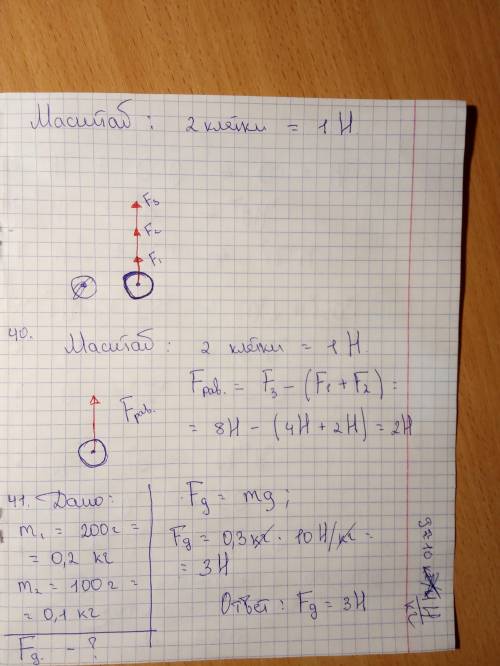 Масштаб: 2 клетки = 1 Н
F₃
F₂
F₁
40.
Масштаб: 2 клетки = 1 Н.
Fрав.
Fрав. = F₃ - (F₁ + F₂) =
= 8Н - (4Н + 2Н) = 2Н
41. Дано:
m₁ = 200г =
= 0,2 кг
m₂ = 100г =
= 0,1 кг
Fg - ?
Fg = mg;
Fg = 0,3кг · 10Н/кг =
= 3Н
Ответ: Fg = 3Н
g≈10 Н/кг